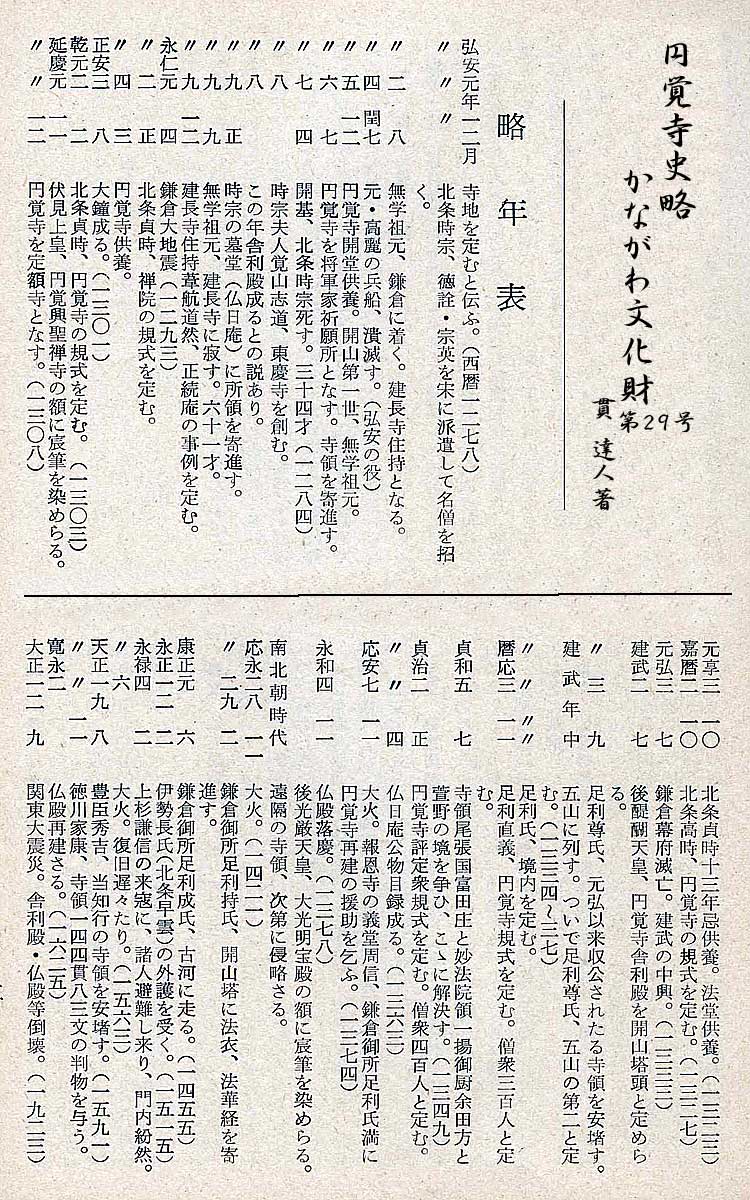 円覚寺史略
かながわ文化財
第29号
貫 達人著
略年表
弘安元年一二月 寺地を定むと伝ふ。(西暦一二七八)
〃 〃 〃 北条時宗、徳詮・宗英を宋に派遣して名僧を招
く。
〃 二 八 無学祖元、鎌倉に着く。建長寺住持となる。
〃 四 閏七 元・高麗の兵船、潰滅す。(弘安の役)
〃 五 一二 円覚寺開堂供養。開山第一世、無学祖元。
〃 六 七 円覚寺を将軍家祈願所となす。寺領を寄進す。
〃 七 四 開基、北条時宗死す。三十四才(一二八四)
〃 八 時宗夫人覚山志道、東慶寺を創む。
〃 八 この年舎利殿成るとの説あり。
〃 九 正 時宗の墓堂(仏日庵)に所領を寄進す。
〃 九 九 無学祖元、建長寺に寂す。六十一才。
〃 九 一二 建長寺住持葦航道然、正続庵の事例を定む。
永仁元 四 鎌倉大地震(一二九三)
〃 二 正 北条貞時、禅院の規式を定む。
〃 四 三 円覚寺供養。
正安三 八 大鐘成る。(一三〇一)
乾元二 二 北条貞時、円覚寺の規式を定む。(一三〇三)
延慶元 一一 伏見上皇、円覚興聖禅寺の額に宸筆を染めらる。
〃 〃 一二 円覚寺を定額寺となす。(一三〇八)
元享三 一〇 北条貞時十三年忌供養。法堂供養。(一三二三)
嘉暦二 一〇 北条高時、円覚寺の規式を定む。(一三二七)
元弘三 七 鎌倉幕府滅亡。建武の中興。(一三三三)
建武二 七 後醍醐天皇、円覚寺舎利殿を開山塔頭と定めら
る。
〃 三 九 足利尊氏、元弘以来収公されたる寺領を安堵す。
建武年中 五山に列す。ついで足利尊氏、五山の第二と定
む。(一三三四~三七)
〃 〃 〃 足利氏、境内を定む。
暦応三 一一 足利直義、円覚寺規式を定む。僧衆三百人と定
む。
貞和五 七 寺領尾張国富田庄と妙法院領一揚御厨余田方と
萱野の境を争ひ、こゝに解決す。(一三四九)
貞治二 正 円覚寺評定衆規式を定む。僧衆四百人と定む。
〃 〃 四 仏日庵公物目録成る。(一三六三)
応安七 一一 大火。報恩寺の義堂周信、鎌倉御所足利氏満に
円覚寺再建の援助を乞ふ。(一三七四)
永和四 一一 仏殿落慶。(一三七八)
後光厳天皇、大光明宝殿の額に宸筆を染めらる。
南北朝時代 遠隔の寺領、次第に侵略さる。
応永二八 一一 大火。(一四二一)
〃 二九 二 鎌倉御所足利持氏、開山塔に法衣、法華経を寄
進す。
康正元 六 鎌倉御所足利成氏、古河に走る。(一四五五)
永正一二 二 伊勢長氏(北条早雲)の外護を受く。(一五一五)
永禄四 二 上杉謙信の来寇に、諸人避難し来り、門内紛然。
〃 六 大火。復旧遅々たり。(一五六三)
天正一九 八 豊臣秀吉、当知行の寺領を安堵す。(一五九一)
〃 〃 一一 徳川家康、寺領一四四貫八三文の判物を与う。
寛永二 仏殿再建さる。(一六二五)
大正一二 九 関東大震災。舎利殿・仏殿等倒壊。(一九二三)